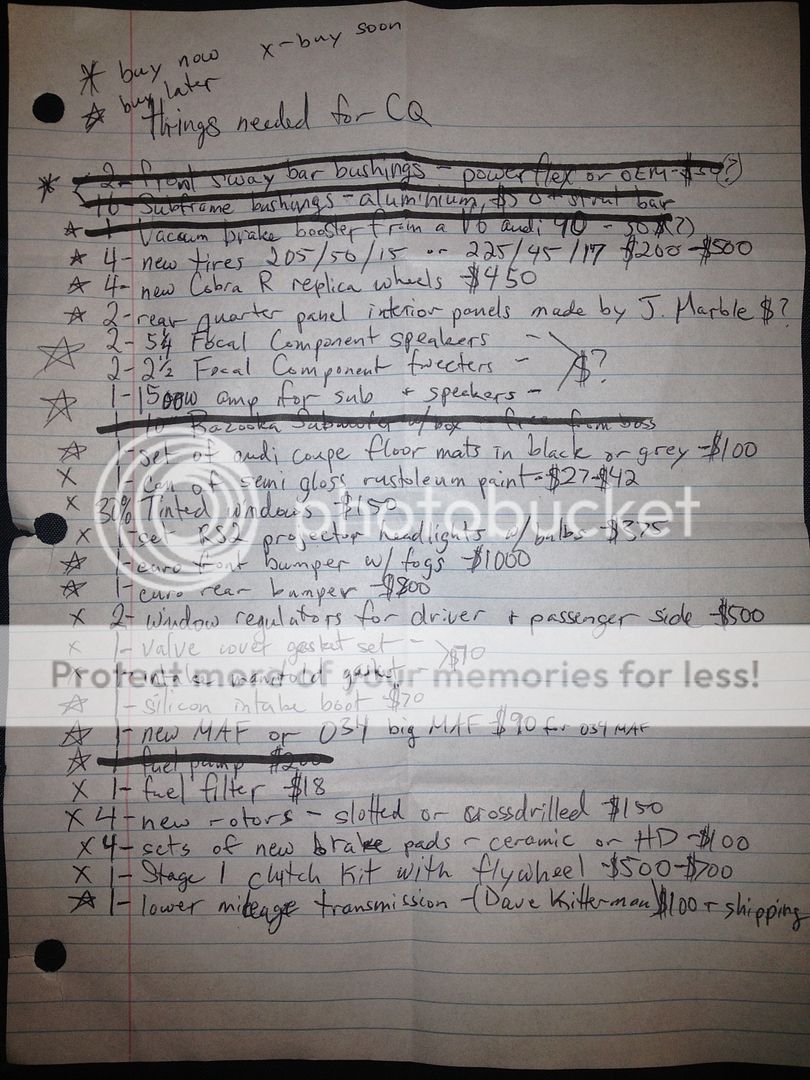 * buy now x-buy soon
☆ buy later
things needed for CQ
* 2- front sway bar bushings - powerflex or OEM-$50(?)
10 Subframe bushings - aluminium, $50 + strut bar
☆ 1 Vacuum brake booster from a V6 audi 90 - 50$(?)
☆ 4- new tires 205/50/15 or 225/45/17 $200-$500
☆ 4- new Cobra R replica wheels -$450
☆ 2- rear quarter panel interior panels made by J. Marble $?
☆ 2- 5¼ Focal Component speakers -
2- 2½ Focal Component tweeters - >$?
☆ 1-1500w amp for sub + speakers -
1 10 Bazooka Subwoofer w/box - free from boss
☆ 1-set of audi coupe floor mats in black or grey -$100
X 1-can of semi gloss rustoleum paint-$27-$42
X 30% Tinted windows -$150
X 1-set RS2 projector headlights w/bulbs -$375
☆ 1-euro front bumper w/ fogs -$1000
☆ 1-euro rear bumper -$800
X 2-window regulators for driver + passenger side -$500
X 1-valve cover gasket set - >$70
X 1-intake manifold gasket -
☆ 1-silicon intake boot $70
☆ 1-new MAF or 034 big MAF $90 for 034 MAF
☆ 1 fuel pump $200
X 1-fuel filter $18
X 4-new rotors - slotted or crossdrilled $150
X 4-sets of new brake pads - ceramic or HD-$100
X 1-Stage 1 clutch kit with flywheel -$500-$700
☆ 1-lower mileage transmission -(Dave Kitterman)$100 + shipping
photobucket
Protect more of your memories for less!